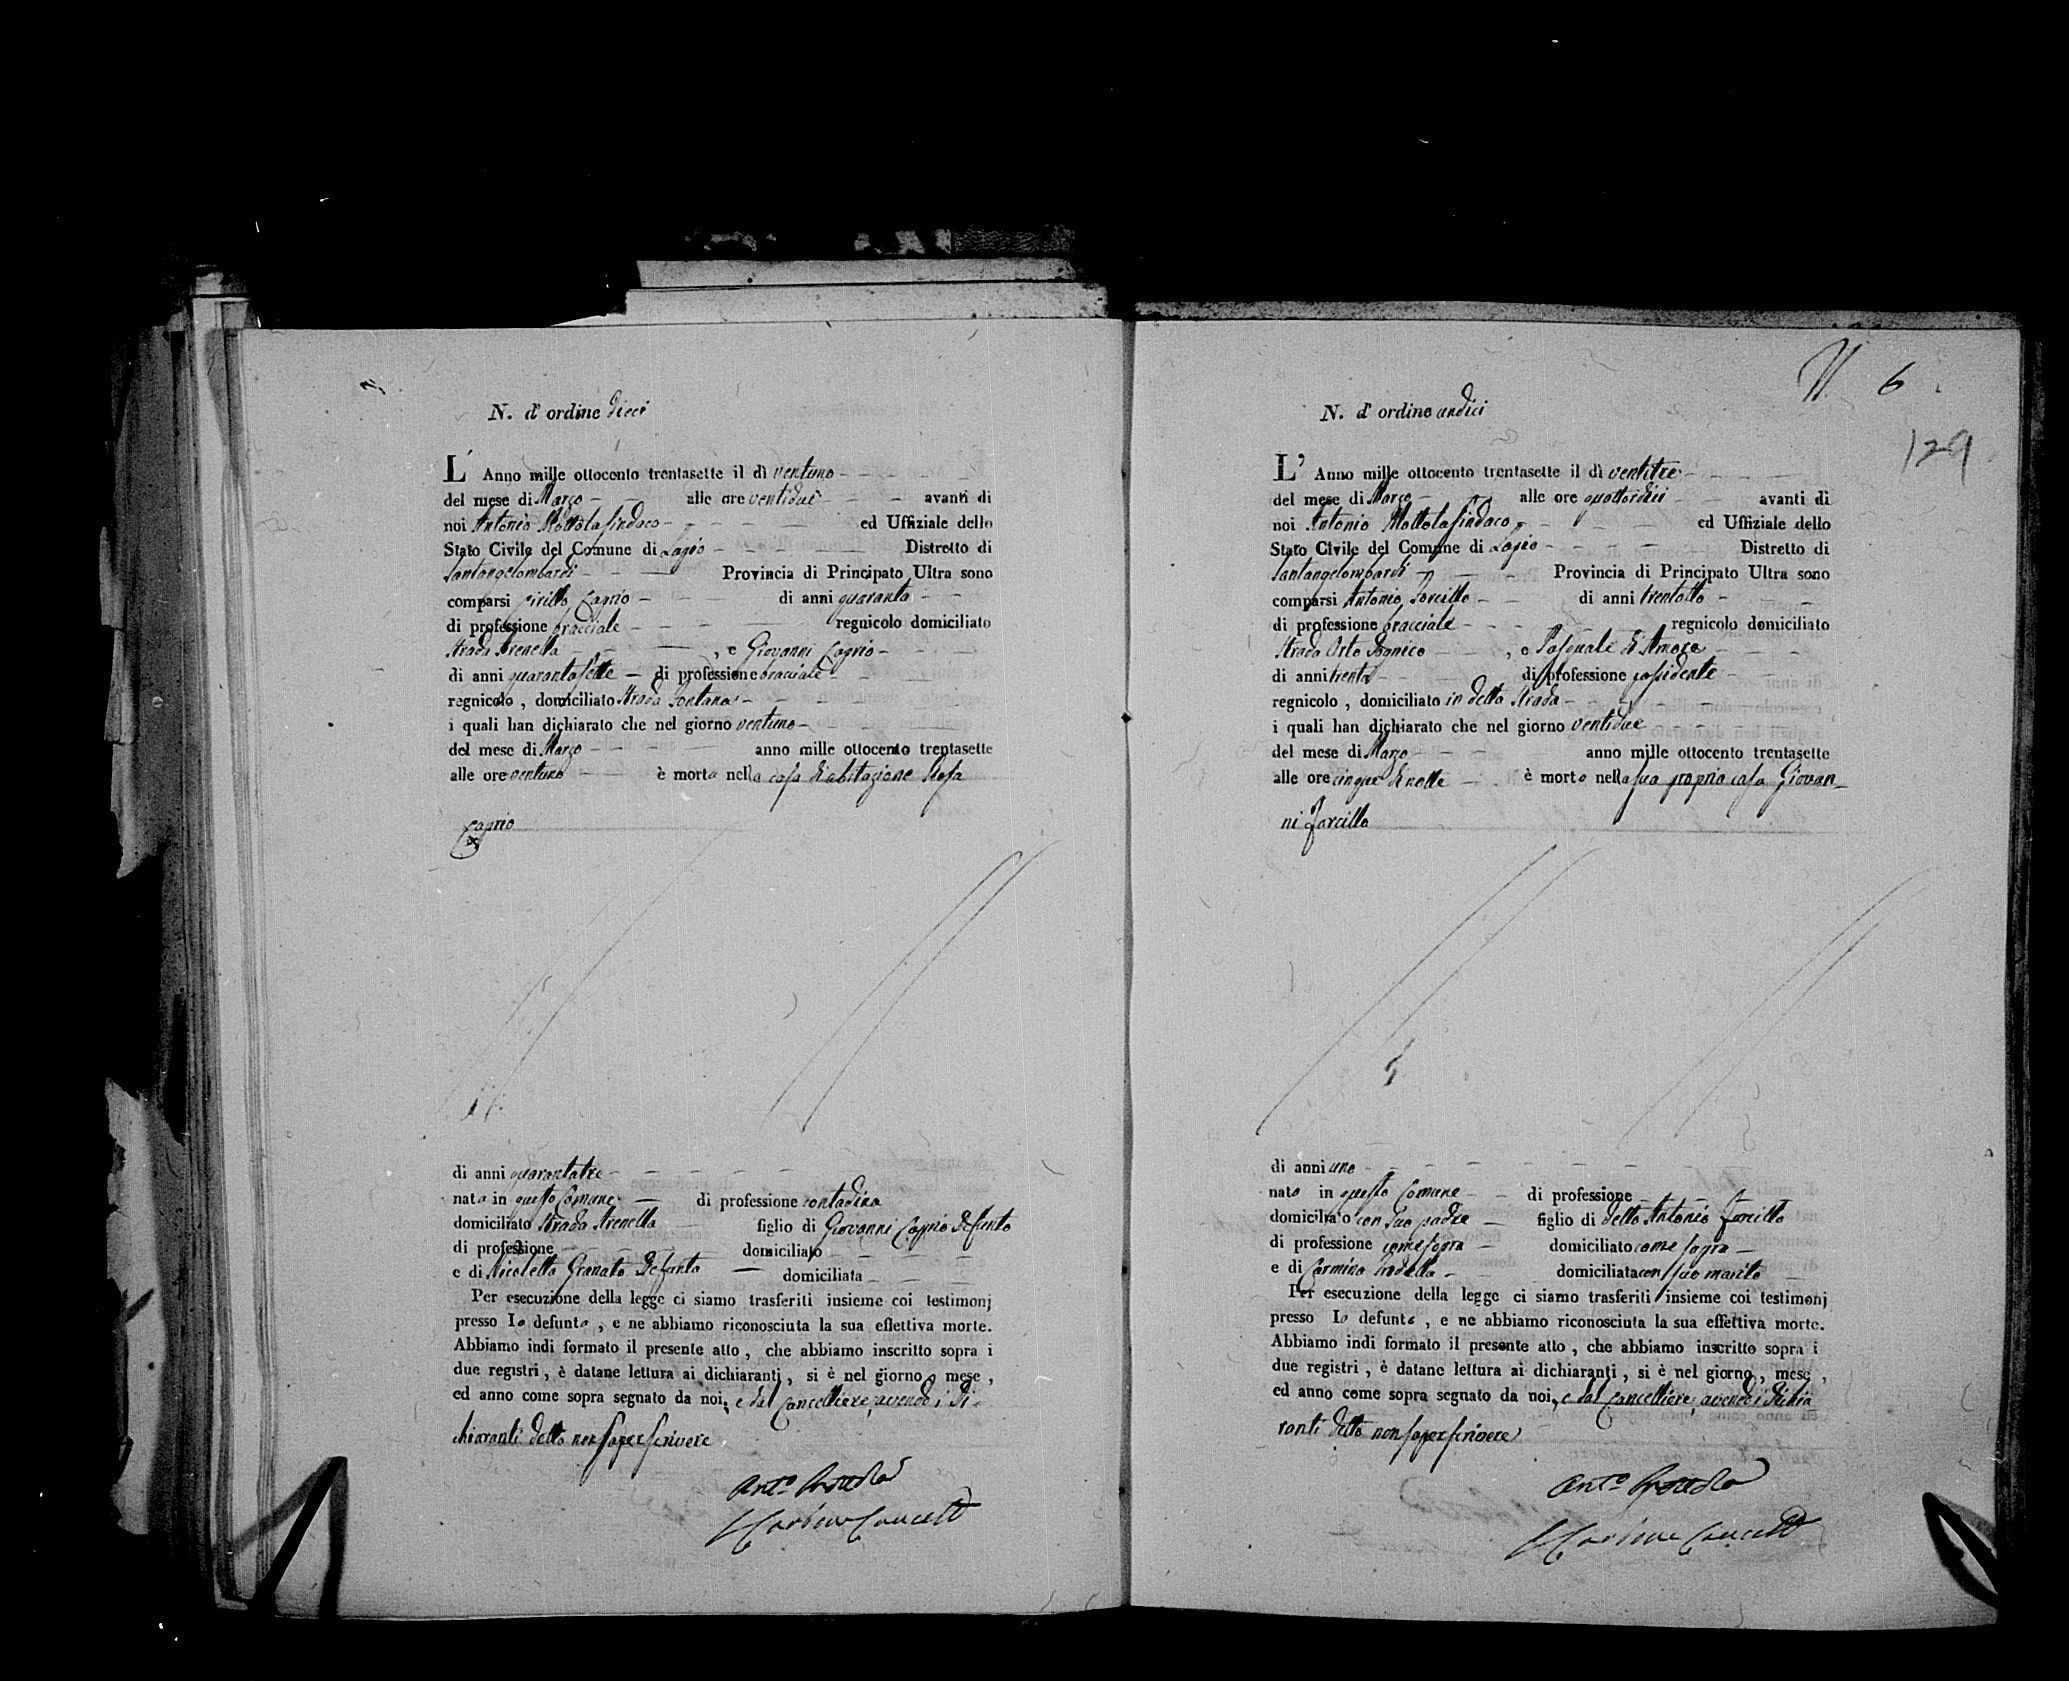 N. d' ordine dieci
L' Anno mille ottocento trentasette il dì ventuno
del mese di Marzo alle ore ventidue avanti di
noi Antonio Mottola Sindaco ed Uffiziale dello
Stato Civile del Comune di Lagio Distretto di
Santangelombardi Provincia di Principato Ultra sono
comparsi Cirillo Caprio di anni quaranta
di professione bracciale regnicolo domiciliato
Strada Arenella , e Giovanni Caprio
di anni quarantasette di professione bracciale
regnicolo , domiciliato Strada Fontana
i quali han dichiarato che nel giorno ventuno
del mese di Marzo anno mille ottocento trentasette
alle ore ventuno è morta nella casa di abitazione Rosa
Caprio
di anni quarantatre
nata in questo Comune di professione contadina
domiciliato Strada Arenella figlio di Giovanni Caprio defunto
di professione domiciliato
e di Nicoletta Granato defunta domiciliata
Per esecuzione della legge ci siamo trasferiti insieme coi testimonj
presso la defunta , e ne abbiamo riconosciuta la sua effettiva morte.
Abbiamo indi formato il presente atto , che abbiamo inscritto sopra i
due registri , è datane lettura ai dichiaranti , si è nel giorno , mese ,
ed anno come sopra segnato da noi, e dal Cancelliere, avendo i di-
chiaranti detto non saper scrivere
Ant.o Mottola
N. 6
129
N. d' ordine undici
L' Anno mille ottocento trentasette il dì ventitre
del mese di Marzo alle ore quattordici avanti di
noi Antonio Mottola Sindaco ed Uffiziale dello
Stato Civile del Comune di Lagio Distretto di
Santangelombardi Provincia di Principato Ultra sono
comparsi Antonio Forcillo di anni trentotto
di professione bracciale regnicolo domiciliato
Strada Orto , e Pasquale di Amore
di anni trenta di professione possidente
regnicolo , domiciliato in detta Strada
i quali han dichiarato che nel giorno ventidue
del mese di Marzo anno mille ottocento trentasette
alle ore cinque di notte è morto nella sua propria casa Giovan-
ni Forcillo
di anni uno
nato in questo Comune di professione
domiciliato con suo padre figlio di detto Antonio Forcillo
di professione come sopra domiciliato come sopra
e di Carmina domiciliata con suo marito
Per esecuzione della legge ci siamo trasferiti insieme coi testimonj
presso lo defunto , e ne abbiamo riconosciuta la sua effettiva morte.
Abbiamo indi formato il presente atto , che abbiamo inscritto sopra i
due registri , è datane lettura ai dichiaranti , si è nel giorno , mese ,
ed anno come sopra segnato da noi, e dal Cancelliere, avendo i dichia
ranti detto non saper scrivere
Ant.o Mottola